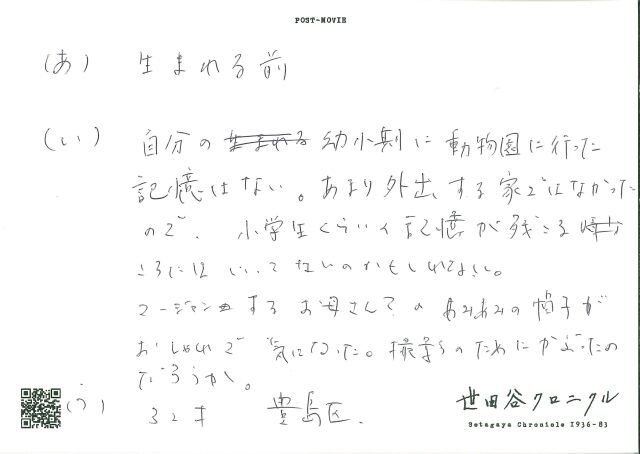 POST-MOVIE
(あ) 生まれる前
(い) 自分の生まれる幼小期に動物園に行った
記憶はない。あまり外出する家ではなかった
ので、小学生くらいく記憶が残こる
ころには いってないのかもしれない。
するお母さんてのあみあみの帽子が
おしゃれで気になった。撮影のためにかぶったの
だろうか。
(う) 32才 豊島区.
世田谷クロニクル
Setagaya Chronicle 1936-83